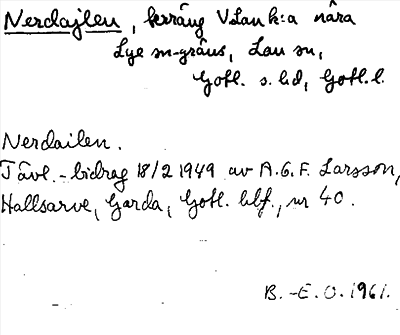 Nerdajlen, terräng V Lau k:a nära
Lye sn-gräns, Lau sn,
Gotl. s. hd, Gotl. l.
Nerdailen.
Tävl.-bidrag 18/2 1949 av A.G.F. Larsson,
Hallsarve, Garda, Gotl. hlf., nr 40.
B.-E. O. 1961.